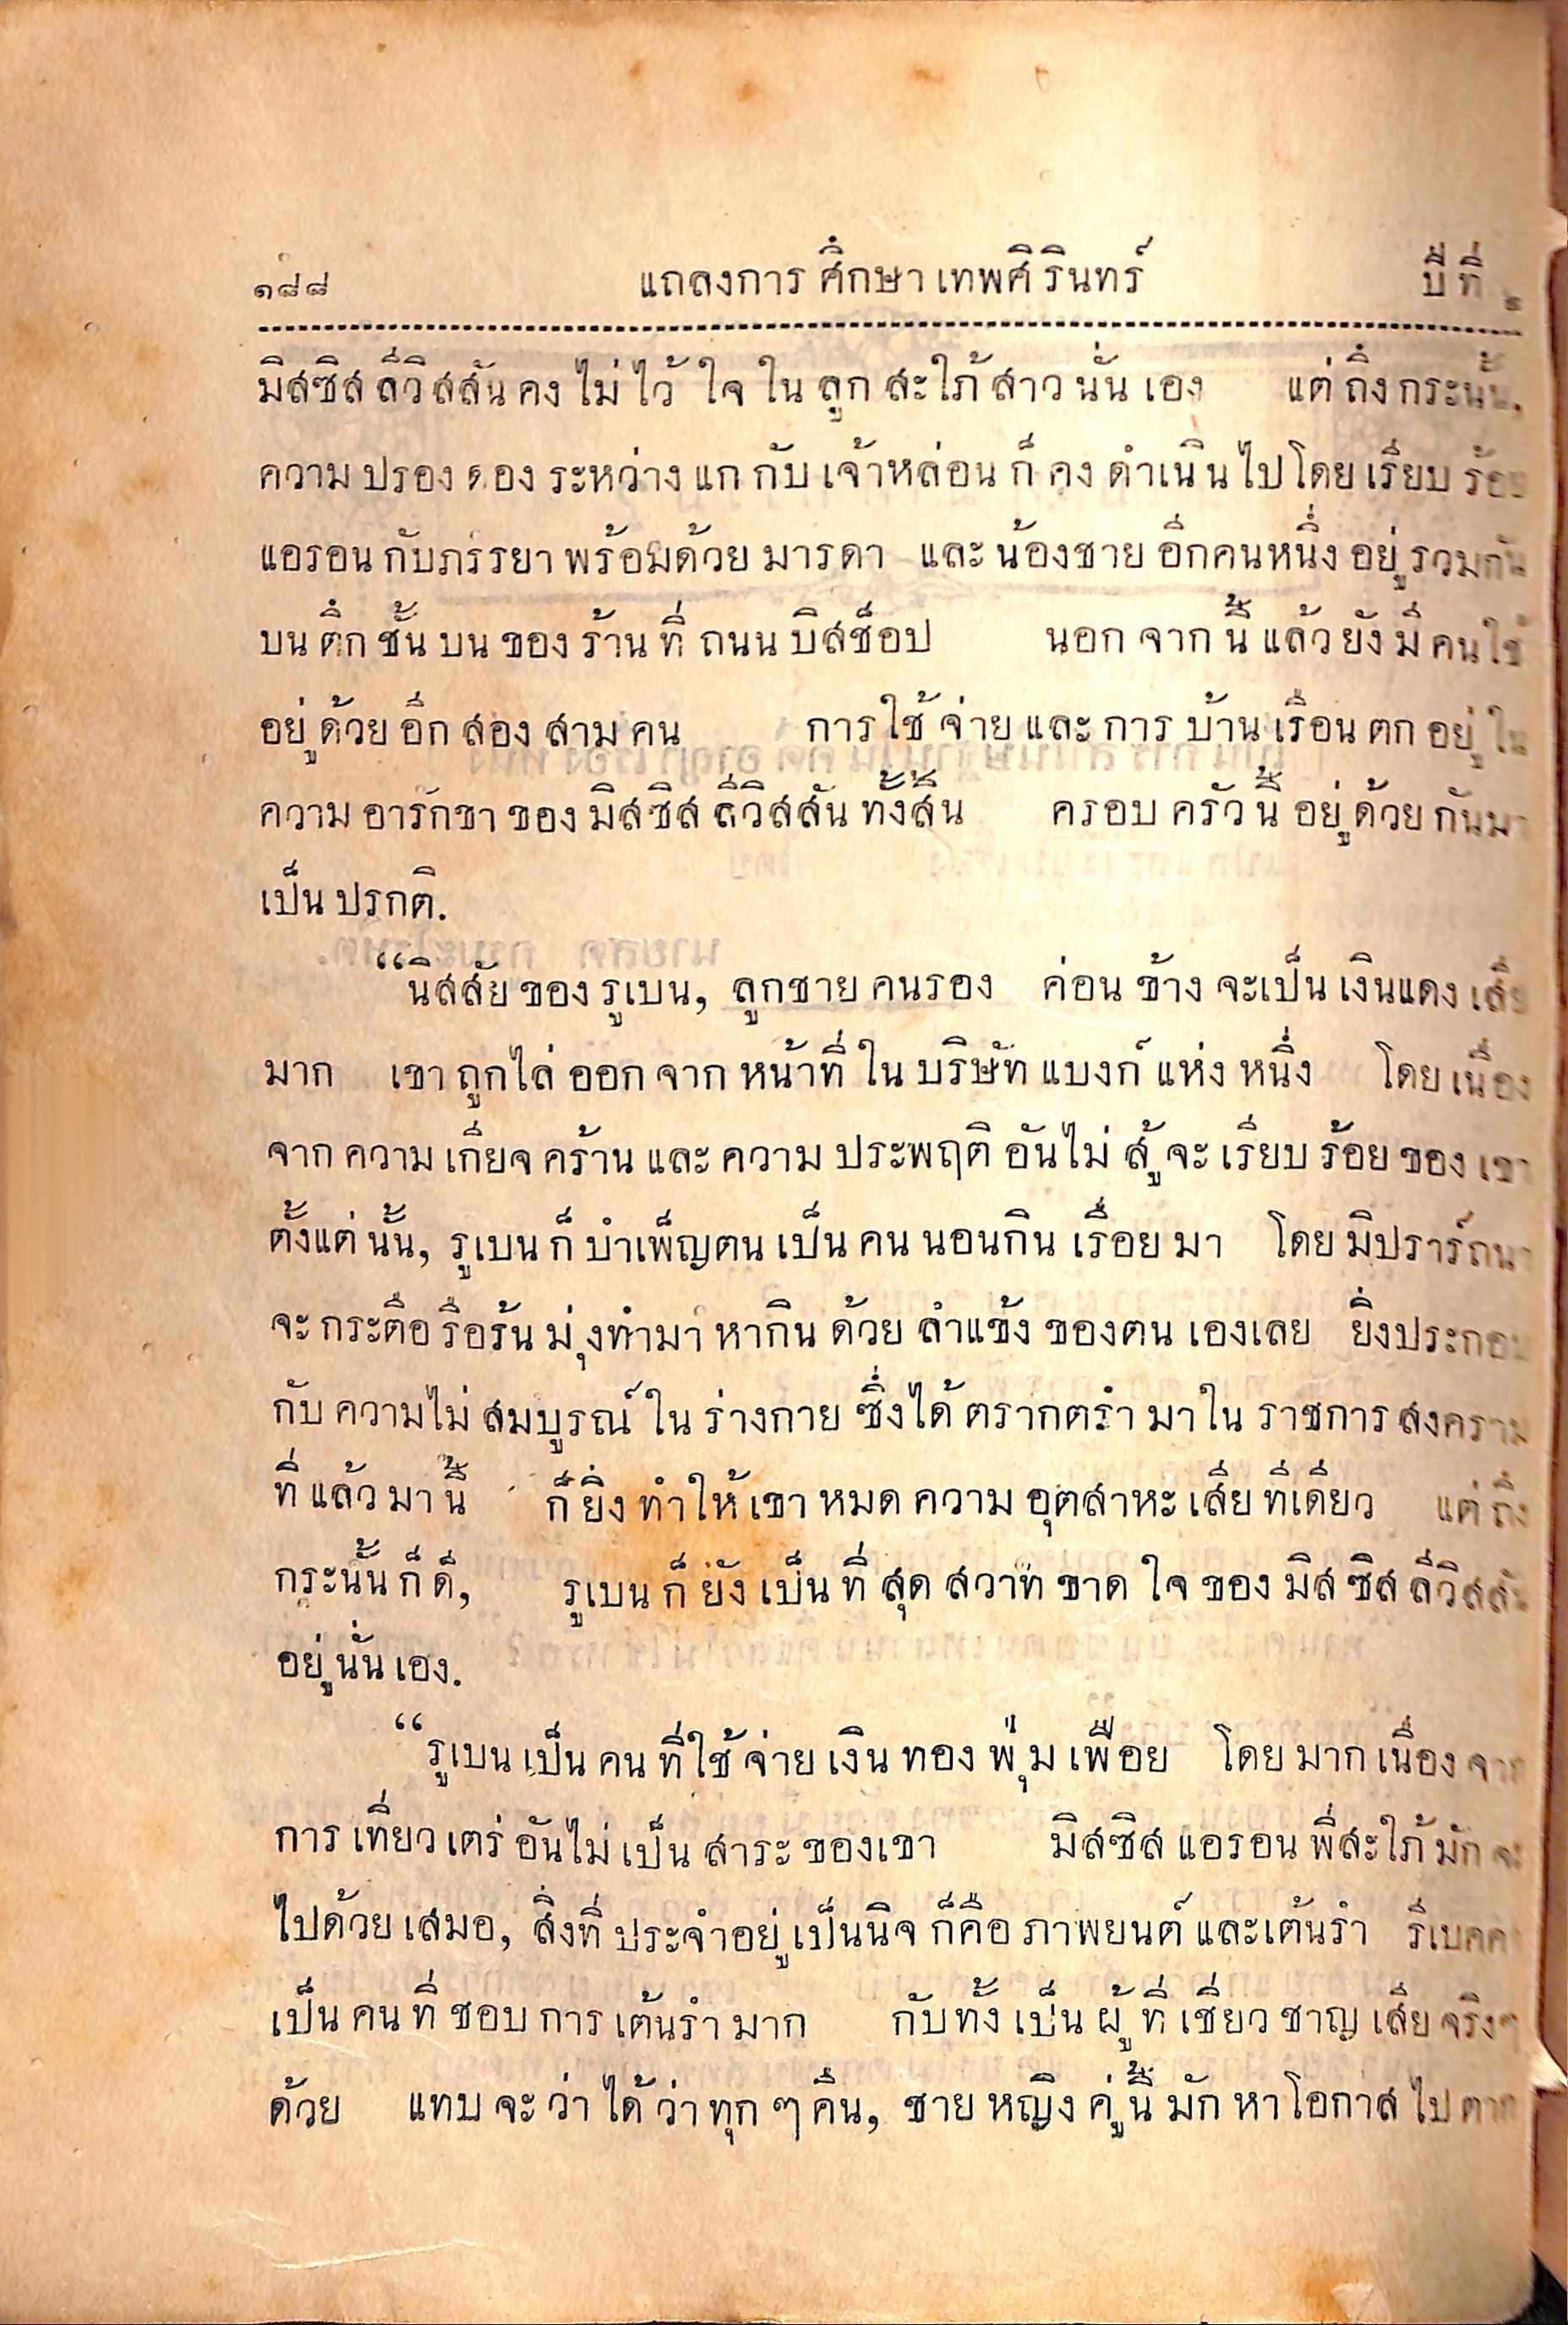 ๑๘๘ แถลงการศึกษาเทพศิรินทร์ ปีที่ ๒
มิสซิสลีวิสสันคงไม่ไว้ใจในลูกสะใภ้สาวนั่นเอง แต่ถึงกระนั้น,
ความปรองดองระหว่างแกกับเจ้าหล่อนก็คงดำเนินไปโดยเรียบร้อย
แอรอนกับภรรยาพร้อมด้วยมารดา และน้องชายอีกคนหนึ่งอยู่รวมกัน
บนตึกชั้นบนของร้านที่ถนนบิสช็อป นอกจากนี้แล้วยังมีคนใช้
อยู่ด้วยอีกสองสามคน การใช้จ่ายและการบ้านเรือนตกอยู่ใน
ความอารักขาของมิสซิสลีวิสสันทั้งสิ้น ครอบครัวนี้อยู่ด้วยกันมา
เป็นปรกติ.
“นิสสัยของรูเบน, ลูกชายคนรอง ค่อนข้างจะเป็นเงินแดงเสีย
มาก เขาถูกไล่ออกจากหน้าที่ในบริษัทแบงก์แห่งหนึ่ง โดยเนื่อง
จากความเกียจคร้านและความประพฤติอันไม่สู้จะเรียบร้อยของเขา
ตั้งแต่นั้น, รูเบนก็บำเพ็ญตนเป็นคนนอนกินเรื่อยมา โดยมิปรารถนา
จะกระตือรือร้นมุ่งทำมาหากินด้วยลำแข้งของตนเองเลย ยิ่งประกอบ
กับความไม่สมบูรณ์ในร่างกายซึ่งได้ตรากตรำมาในราชการสงคราม
ที่แล้วมานี้ ก็ยิ่งทำให้เขาหมดความอุตสาหะเสียทีเดียว แต่ถึง
กระนั้นก็ดี, รูเบนก็ยังเป็นที่สุดสวาทขาดใจของมิสซิสลีวิสสัน
อยู่นั่นเอง.
“รูเบนเป็นคนที่ใช้จ่ายเงินทองพุ่มเพือย โดยมากเนื่องจาก
การเที่ยวเตร่อันไม่เป็นสาระของเขา มิสซิสแอรอนพี่สะใภ้มักจะ
ไปด้วยเสมอ, สิ่งที่ประจำอยู่เป็นนิจก็คือภาพยนต์และเต้นรำ รีเบคคา
เป็นคนที่ชอบการเต้นรำมาก กับทั้งเป็นผู้ที่เชี่ยวชาญเสียจริงๆ
ด้วย แทบจะว่าได้ว่าทุกๆคืน, ชายหญิงคู่นี้มักหาโอกาสไปตาก